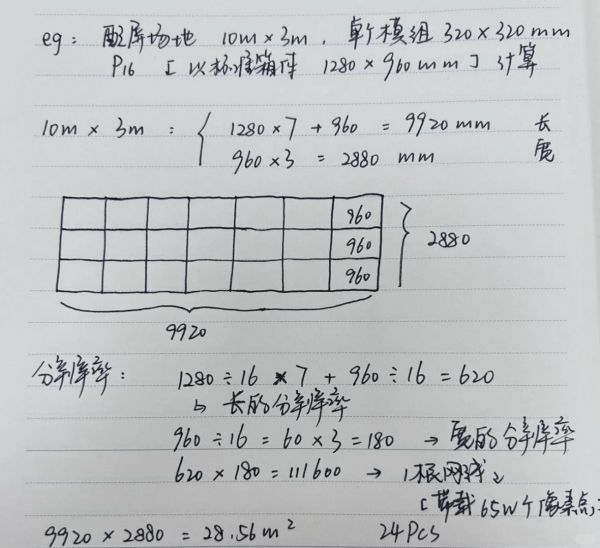 eg: 配屏场地 10m×3m, 单个模组 320×320mm
P16 [以标准箱体 1280×960mm] 计算
10m×3m: { 1280×7+960=9920mm 长
960×3=2880 mm 宽
960
960 2880
960
9920
分辨率: 1280÷16×7+960÷16=620
↳ 长的分辨率
960÷16=60×3=180 → 宽的分辨率
620×180=111600 → 1根网线
[带载65W个像素点
9920×2880=28.56m² 24Pcs